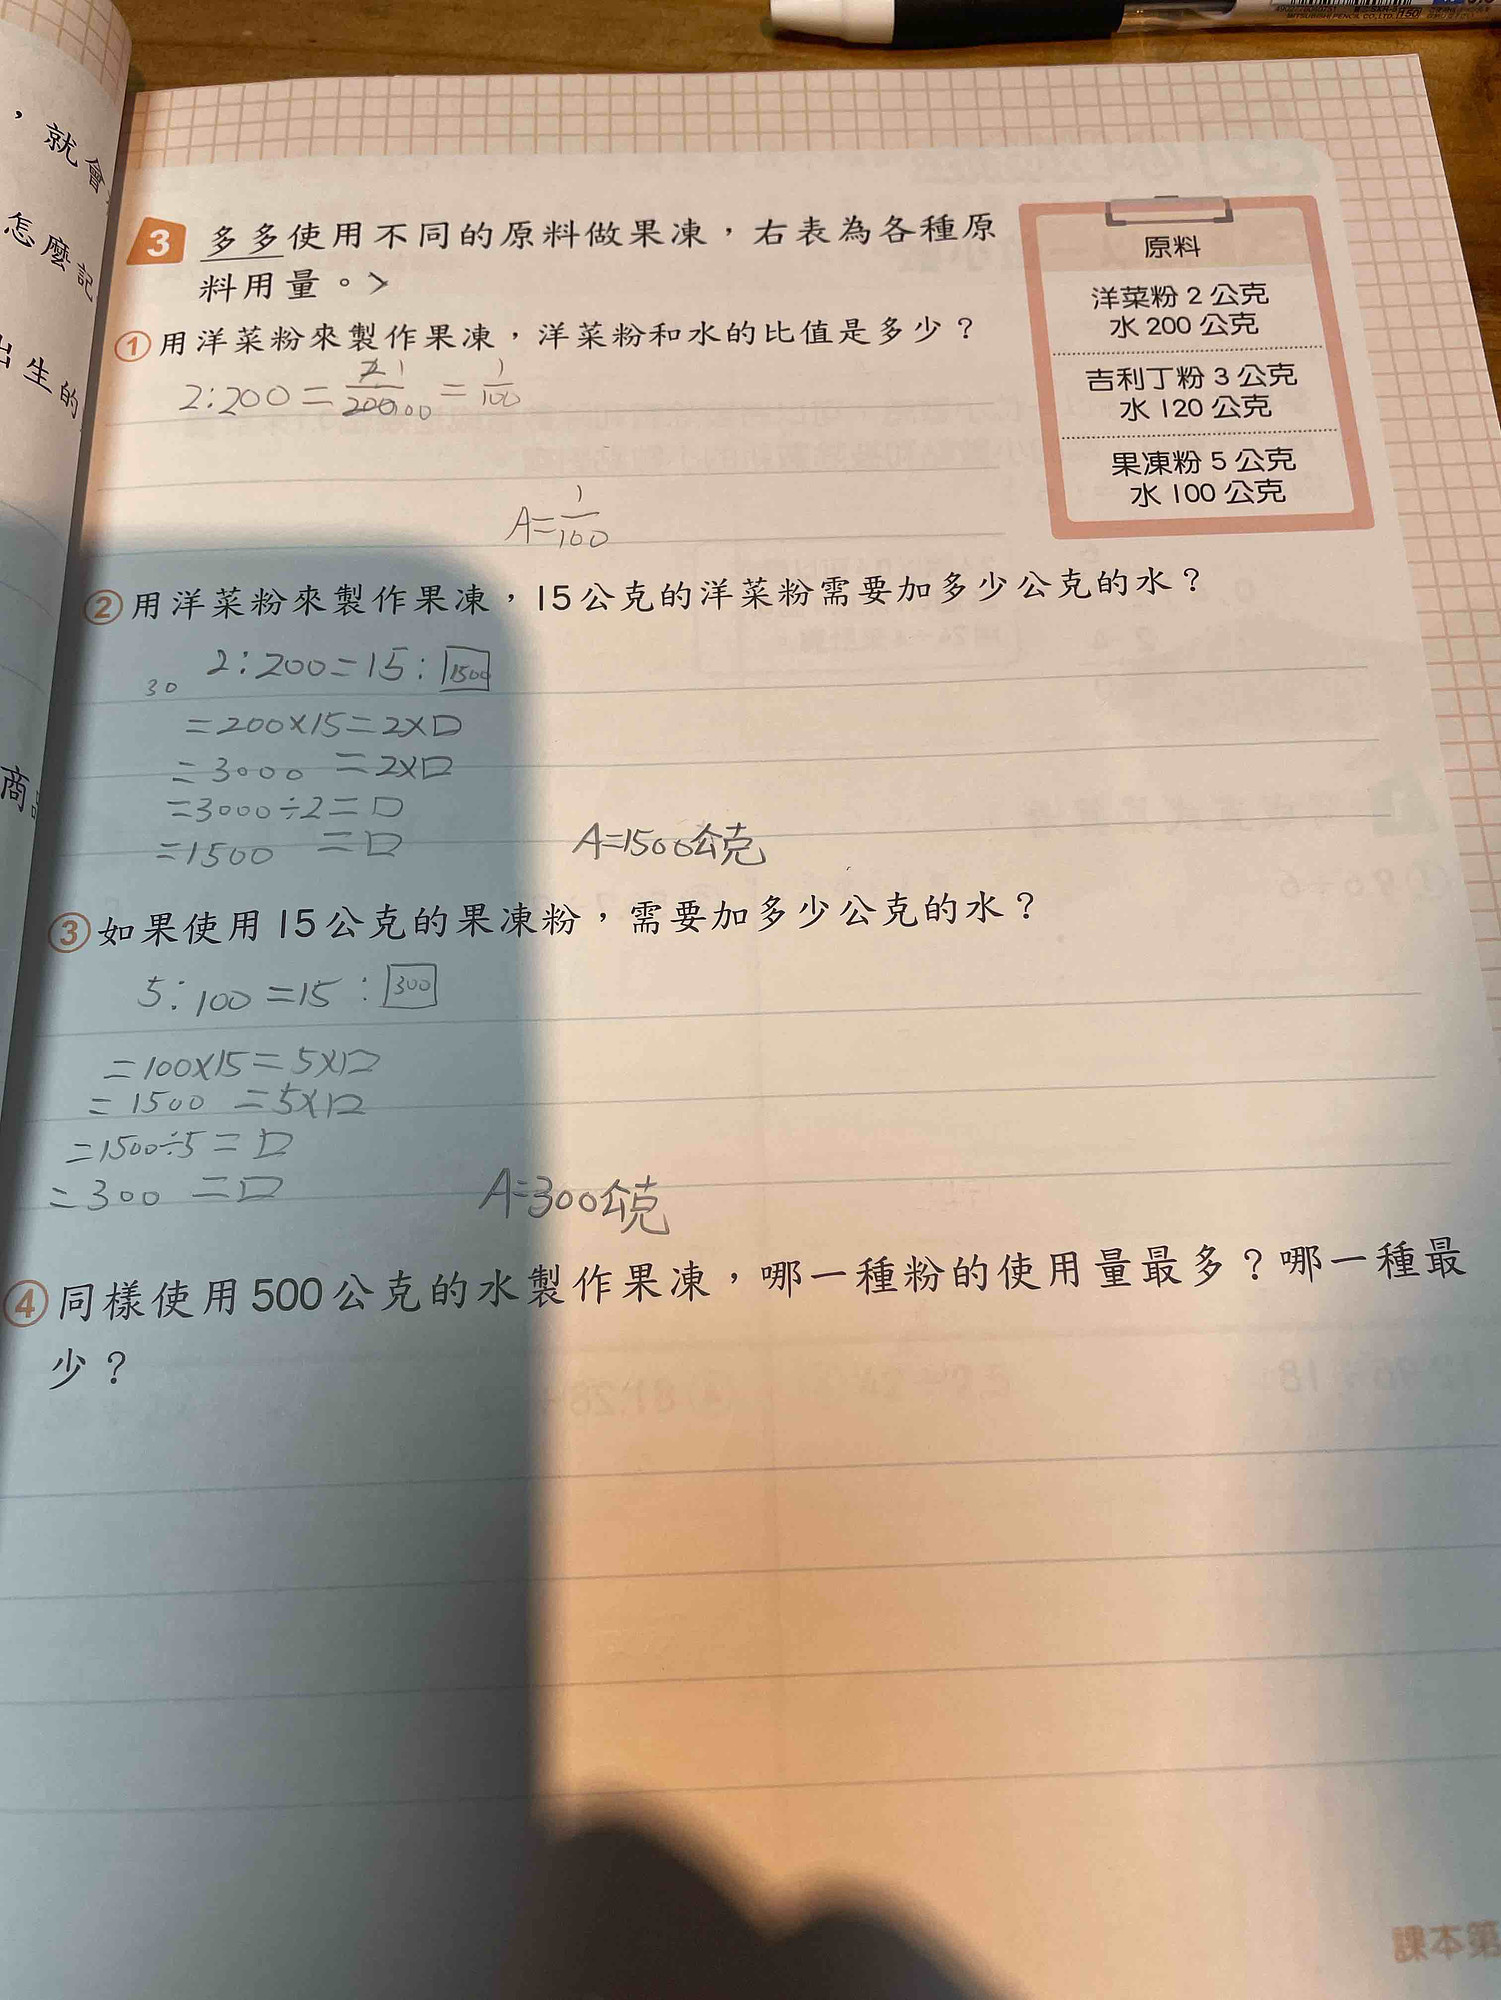 ，就會
怎麼記
出生的
商
3 多多使用不同的原料做果凍，右表為各種原
料用量。>
原料
洋菜粉 2 公克
水 200 公克
吉利丁粉 3 公克
水 120 公克
果凍粉 5 公克
水 100 公克
① 用洋菜粉來製作果凍，洋菜粉和水的比值是多少？
2:200 = 2 1/200 100 = 1/100
A=1/100
② 用洋菜粉來製作果凍，15公克的洋菜粉需要加多少公克的水？
30 2:200=15:1500
=200×15=2×□
=3000 =2×□
=3000÷2=□
=1500 =□
A=1500公克
③ 如果使用15公克的果凍粉，需要加多少公克的水？
5:100=15:300
=100×15=5×□
=1500 =5×□
=1500÷5=□
=300 =□
A=300公克
④ 同樣使用500公克的水製作果凍，哪一種粉的使用量最多？哪一種最
少？